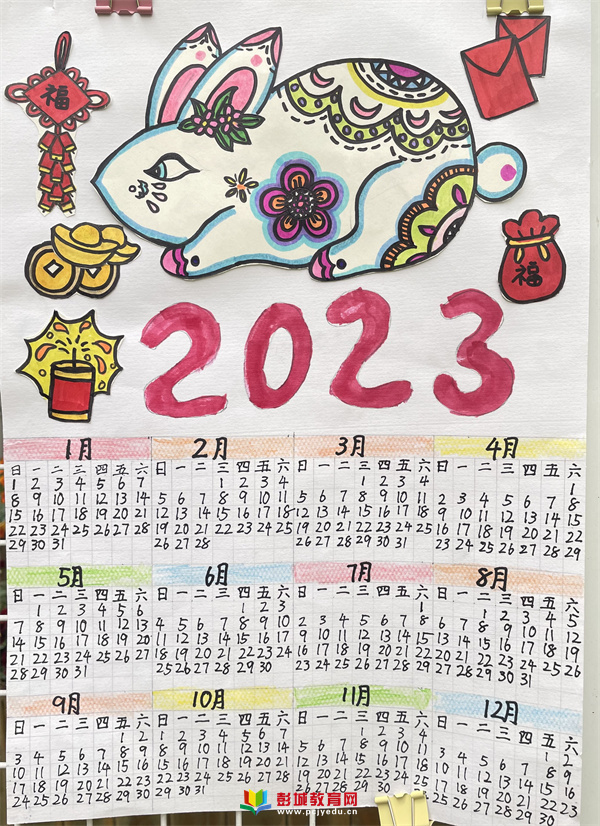 福
福
2023
1月
日 一 二 三 四 五 六
1 2 3 4 5 6 7
8 9 10 11 12 13 14
15 16 17 18 19 20 21
22 23 24 25 26 27 28
29 30 31
2月
日 一 二 三 四 五 六
1 2 3 4
5 6 7 8 9 10 11
12 13 14 15 16 17 18
19 20 21 22 23 24 25
26 27 28
3月
日 一 二 三 四 五 六
1 2 3 4
5 6 7 8 9 10 11
12 13 14 15 16 17 18
19 20 21 22 23 24 25
26 27 28 29 30 31
4月
日 一 二 三 四 五 六
1
2 3 4 5 6 7 8
9 10 11 12 13 14 15
16 17 18 19 20 21 22
23 24 25 26 27 28 29
5月
日 一 二 三 四 五 六
1 2 3 4 5 6
7 8 9 10 11 12 13
14 15 16 17 18 19 20
21 22 23 24 25 26 27
28 29 30 31
6月
日 一 二 三 四 五 六
1 2 3
4 5 6 7 8 9 10
11 12 13 14 15 16 17
18 19 20 21 22 23 24
25 26 27 28 29 30
7月
日 一 二 三 四 五 六
1
2 3 4 5 6 7 8
9 10 11 12 13 14 15
16 17 18 19 20 21 22
23 24 25 26 27 28 29
8月
日 一 二 三 四 五 六
1 2 3 4 5
6 7 8 9 10 11 12
13 14 15 16 17 18 19
20 21 22 23 24 25 26
27 28 29 30 31
9月
日 一 二 三 四 五 六
1 2
3 4 5 6 7 8 9
10 11 12 13 14 15 16
17 18 19 20 21 22 23
24 25 26 27 28 29 30
10月
日 一 二 三 四 五 六
1 2 3 4 5 6 7
8 9 10 11 12 13 14
15 16 17 18 19 20 21
22 23 24 25 26 27 28
29 30 31
11月
日 一 二 三 四 五 六
1 2 3 4
5 6 7 8 9 10 11
12 13 14 15 16 17 18
19 20 21 22 23 24 25
26 27 28 29 30
12月
日 一 二 三 四 五 六
1 2
3 4 5 6 7 8 9
10 11 12 13 14 15 16
17 18 19 20 21 22 23
24 25 26 27 28 29 30
彭城教育网
www.pcjyedu.cn